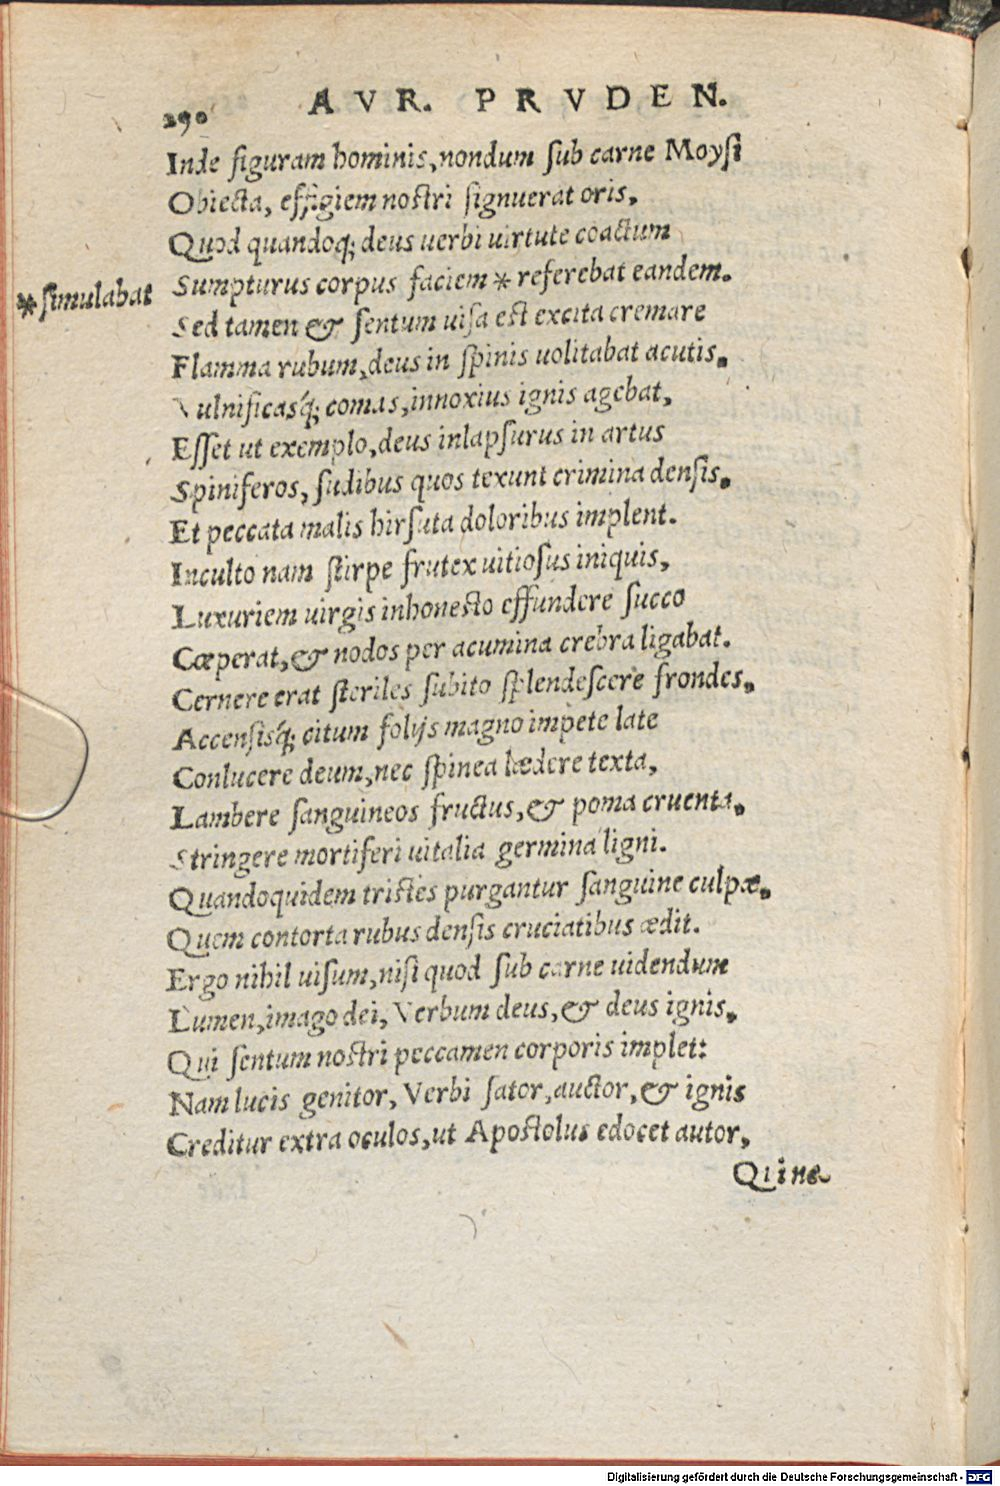 290 AVR. PRVDEN.
Inde figuram hominis, nondum sub carne Moysi
Obiecta, effigiem nostri signuerat oris,
Quod quandoq; deus uerbi uirtute coactum
Sumpturus corpus faciem * referebat eandem.
*simulabat
Sed tamen & sentum uisa est excita cremare
Flamma rubum, deus in spinis uolitabat acutis.
Vulnificasq́; comas, innoxius ignis agebat,
Esset ut exemplo, deus inlapsurus in artus
Spiniferos, sudibus quos texunt crimina densis.
Et peccata malis hirsuta doloribus implent.
Inculto nam stirpe frutex uitiosus iniquis,
Luxuriem uirgis inhonesto effundere succo
Cœperat, & nodos per acumina crebra ligabat.
Cernere erat steriles subito splendescere frondes.
Accensisq́; citum folijs magno impete late
Conlucere deum, nec spinea lædere texta,
Lambere sanguineos fructus, & poma cruenta.
Stringere mortiferi uitalia germina ligni.
Quandoquidem tristes purgantur sanguine culpæ.
Quem contorta rubus densis cruciatibus ædit.
Ergo nihil uisum, nisi quod sub carne uidendum
Lumen, imago dei, Verbum deus, & deus ignis.
Qui sentum nostri peccamen corporis implet:
Nam lucis genitor, Verbi sator, auctor, & ignis
Creditur extra oculos, ut Apostolus edocet autor,
Qui ne
Digitalisierung gefördert durch die Deutsche Forschungsgemeinschaft - DFG